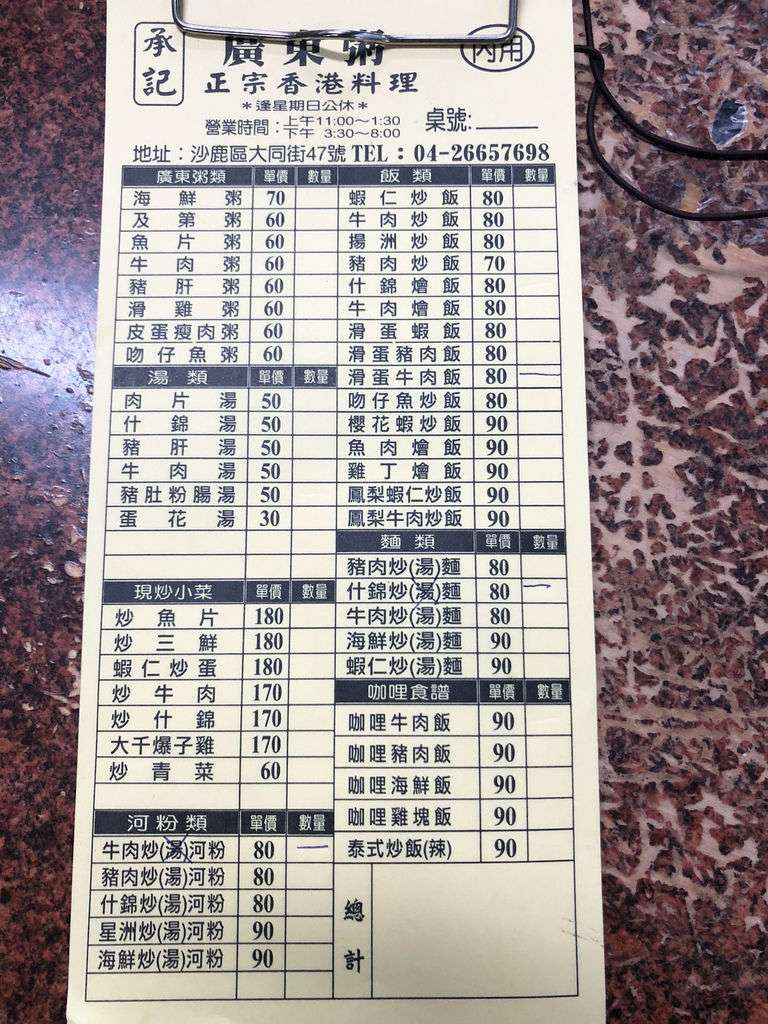 承記
廣東粥
內用
正宗香港料理
*逢星期日公休*
營業時間：上午11:00～1:30
下午 3:30～8:00
桌號:
地址：沙鹿區大同街47號 TEL：04-26657698
廣東粥類 單價 數量
海鮮粥 70
及第粥 60
魚片粥 60
牛肉粥 60
豬肝粥 60
滑雞粥 60
皮蛋瘦肉粥 60
吻仔魚粥 60
湯類 單價 數量
肉片湯 50
什錦湯 50
豬肝湯 50
牛肉湯 50
豬肚粉腸湯 50
蛋花湯 30
現炒小菜 單價 數量
炒魚片 180
炒三鮮 180
蝦仁炒蛋 180
炒牛肉 170
炒什錦 170
大千爆子雞 170
炒青菜 60
河粉類 單價 數量
牛肉炒(湯)河粉 80 一
豬肉炒(湯)河粉 80
什錦炒(湯)河粉 80
星洲炒(湯)河粉 90
海鮮炒(湯)河粉 90
飯類 單價 數量
蝦仁炒飯 80
牛肉炒飯 80
揚洲炒飯 80
豬肉炒飯 70
什錦燴飯 80
牛肉燴飯 80
滑蛋蝦飯 80
滑蛋豬肉飯 80
滑蛋牛肉飯 80 一
吻仔魚炒飯 80
櫻花蝦炒飯 90
魚肉燴飯 90
雞丁燴飯 90
鳳梨蝦仁炒飯 90
鳳梨牛肉炒飯 90
麵類 單價 數量
豬肉炒(湯)麵 80
什錦炒(湯)麵 80 一
牛肉炒(湯)麵 80
海鮮炒(湯)麵 90
蝦仁炒(湯)麵 90
咖哩食譜 單價 數量
咖哩牛肉飯 90
咖哩豬肉飯 90
咖哩海鮮飯 90
咖哩雞塊飯 90
泰式炒飯(辣) 90
總計